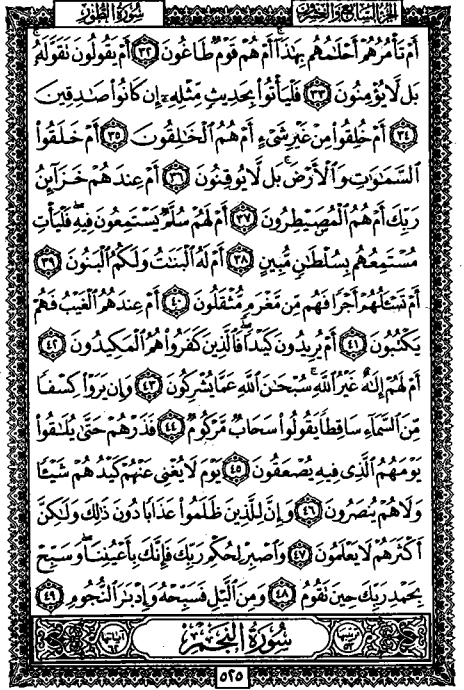 الجزء السابع والعشرون
سورة الطور
أَمْ تَأْمُرُهُمْ أَحْلَٰمُهُم بِهَٰذَآ ۚ أَمْ هُمْ قَوْمٌ طَاغُونَ ٣٢ أَمْ يَقُولُونَ تَقَوَّلَهُۥ ۚ
بَل لَّا يُؤْمِنُونَ ٣٣ فَلْيَأْتُوا۟ بِحَدِيثٍ مِّثْلِهِۦٓ إِن كَانُوا۟ صَٰدِقِينَ
٣٤ أَمْ خُلِقُوا۟ مِنْ غَيْرِ شَىْءٍ أَمْ هُمُ ٱلْخَٰلِقُونَ ٣٥ أَمْ خَلَقُوا۟
ٱلسَّمَٰوَٰتِ وَٱلْأَرْضَ ۚ بَل لَّا يُوقِنُونَ ٣٦ أَمْ عِندَهُمْ خَزَآئِنُ
رَبِّكَ أَمْ هُمُ ٱلْمُصَۣيْطِرُونَ ٣٧ أَمْ لَهُمْ سُلَّمٌ يَسْتَمِعُونَ فِيهِ ۖ فَلْيَأْتِ
مُسْتَمِعُهُم بِسُلْطَٰنٍ مُّبِينٍ ٣٨ أَمْ لَهُ ٱلْبَنَٰتُ وَلَكُمُ ٱلْبَنُونَ ٣٩
أَمْ تَسْـَٔلُهُمْ أَجْرًا فَهُم مِّن مَّغْرَمٍ مُّثْقَلُونَ ٤٠ أَمْ عِندَهُمُ ٱلْغَيْبُ فَهُمْ
يَكْتُبُونَ ٤١ أَمْ يُرِيدُونَ كَيْدًا ۖ فَٱلَّذِينَ كَفَرُوا۟ هُمُ ٱلْمَكِيدُونَ ٤٢
أَمْ لَهُمْ إِلَٰهٌ غَيْرُ ٱللَّهِ ۚ سُبْحَٰنَ ٱللَّهِ عَمَّا يُشْرِكُونَ ٤٣ وَإِن يَرَوْا۟ كِسْفًا
مِّنَ ٱلسَّمَآءِ سَاقِطًا يَقُولُوا۟ سَحَابٌ مَّرْكُومٌ ٤٤ فَذَرْهُمْ حَتَّىٰ يُلَٰقُوا۟
يَوْمَهُمُ ٱلَّذِى فِيهِ يُصْعَقُونَ ٤٥ يَوْمَ لَا يُغْنِى عَنْهُمْ كَيْدُهُمْ شَيْـًٔا
وَلَا هُمْ يُنصَرُونَ ٤٦ وَإِنَّ لِلَّذِينَ ظَلَمُوا۟ عَذَابًا دُونَ ذَٰلِكَ وَلَٰكِنَّ
أَكْثَرَهُمْ لَا يَعْلَمُونَ ٤٧ وَٱصْبِرْ لِحُكْمِ رَبِّكَ فَإِنَّكَ بِأَعْيُنِنَا ۖ وَسَبِّحْ
بِحَمْدِ رَبِّكَ حِينَ تَقُومُ ٤٨ وَمِنَ ٱلَّيْلِ فَسَبِّحْهُ وَإِدْبَٰرَ ٱلنُّجُومِ ٤٩
ترتيبها ٥٣
سورة النجم
آياتها ٦٢
٥٢٥